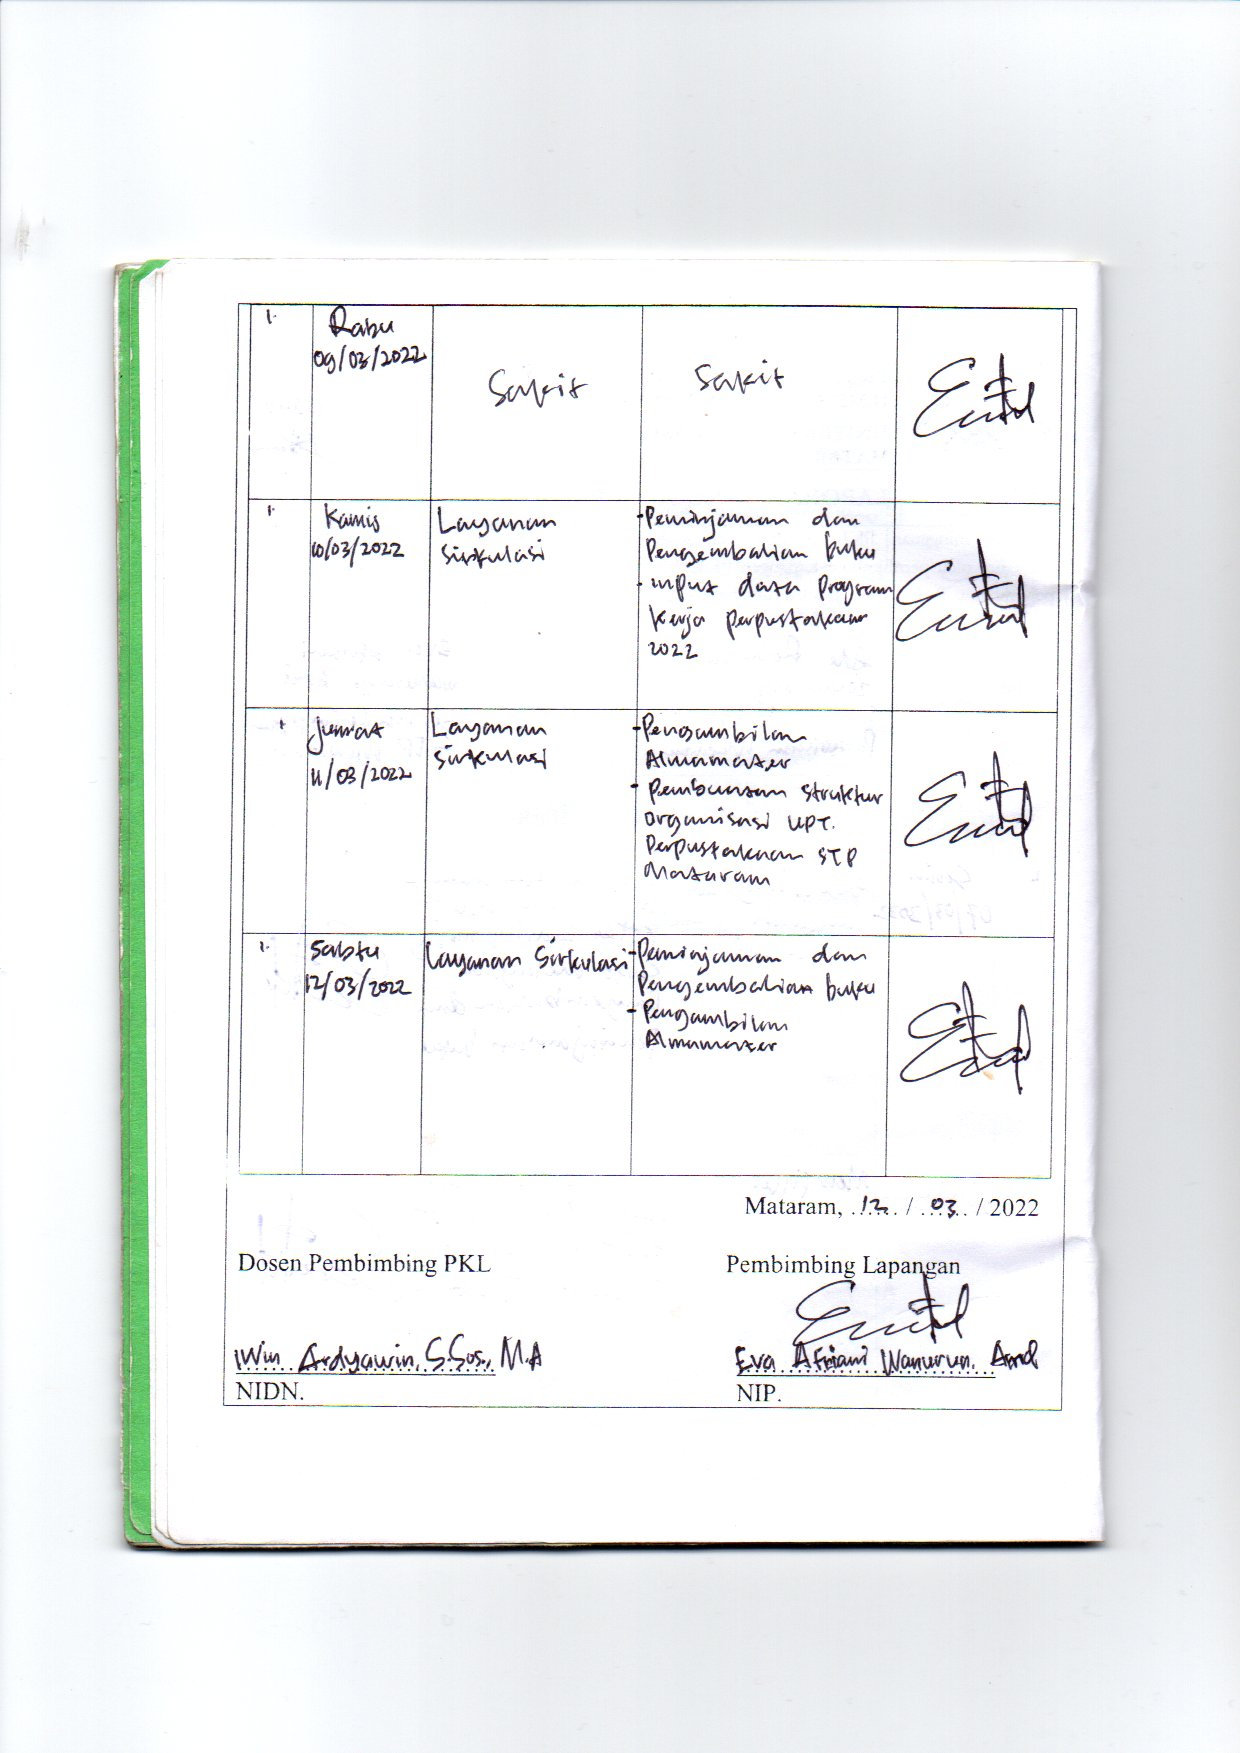 1.
Rabu
09/03/2022
Sakit
Sakit
1.
Kamis
10/03/2022
Layanan
Sirkulasi
- Peminjaman dan
Pengembalian buku
- input data program
kerja perpustakaan
2022
1
Jumat
11/03/2022
Layanan
Sirkulasi
- Pengambilan
Almamater
- Pembuatan struktur
organisasi UPT.
Perpustakaan STP
Mataram
1.
Sabtu
12/03/2022
Layanan Sirkulasi
- Peminjaman dan
Pengembalian buku
- Pengambilan
Almamater
Mataram, 12 / 03 / 2022
Dosen Pembimbing PKL
Pembimbing Lapangan
Iwin Ardyawin, S.Sos., M.A
Eva Afriani
NIDN.
NIP.